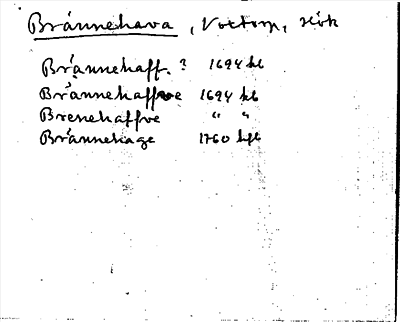 Brännehava, Voxtorp, Hök
Brännehaff. ? 1694 hl
Brännehaffve 1694 hl
Brenehaffve " "
Brännehage 1760 hfl